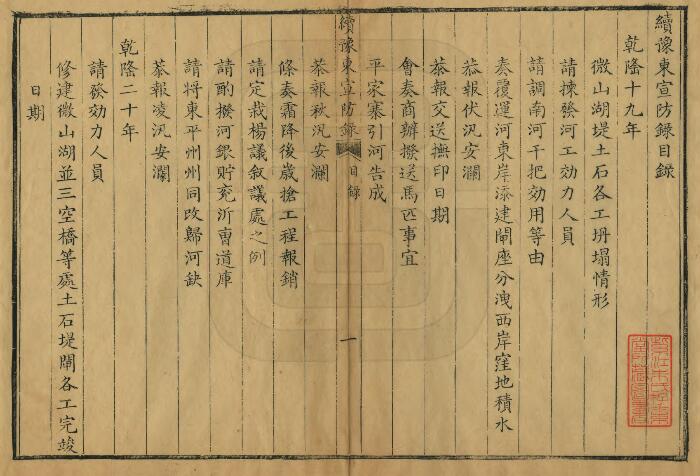 續豫東宣防錄目錄
乾隆十九年
微山湖堤土石各工坍塌情形
請揀發河工効力人員
請調南河千把効用等由
奏覆運河東岸添建閘座分洩西岸窪地積水
恭報伏汛安瀾
恭報交送撫印日期
會奏商辦撥送馬匹事宜
平家寨引河告成
續豫東宣防錄 目錄 一
恭報秋汛安瀾
條奏霜降後歲搶工程報銷
請定栽楊議敘議處之例
請酌撥河銀貯兖沂曹道庫
請將東平州州同改歸河缺
恭報凌汛安瀾
乾隆二十年
請發効力人員
修建微山湖並三空橋等處土石堤閘各工完竣
日期